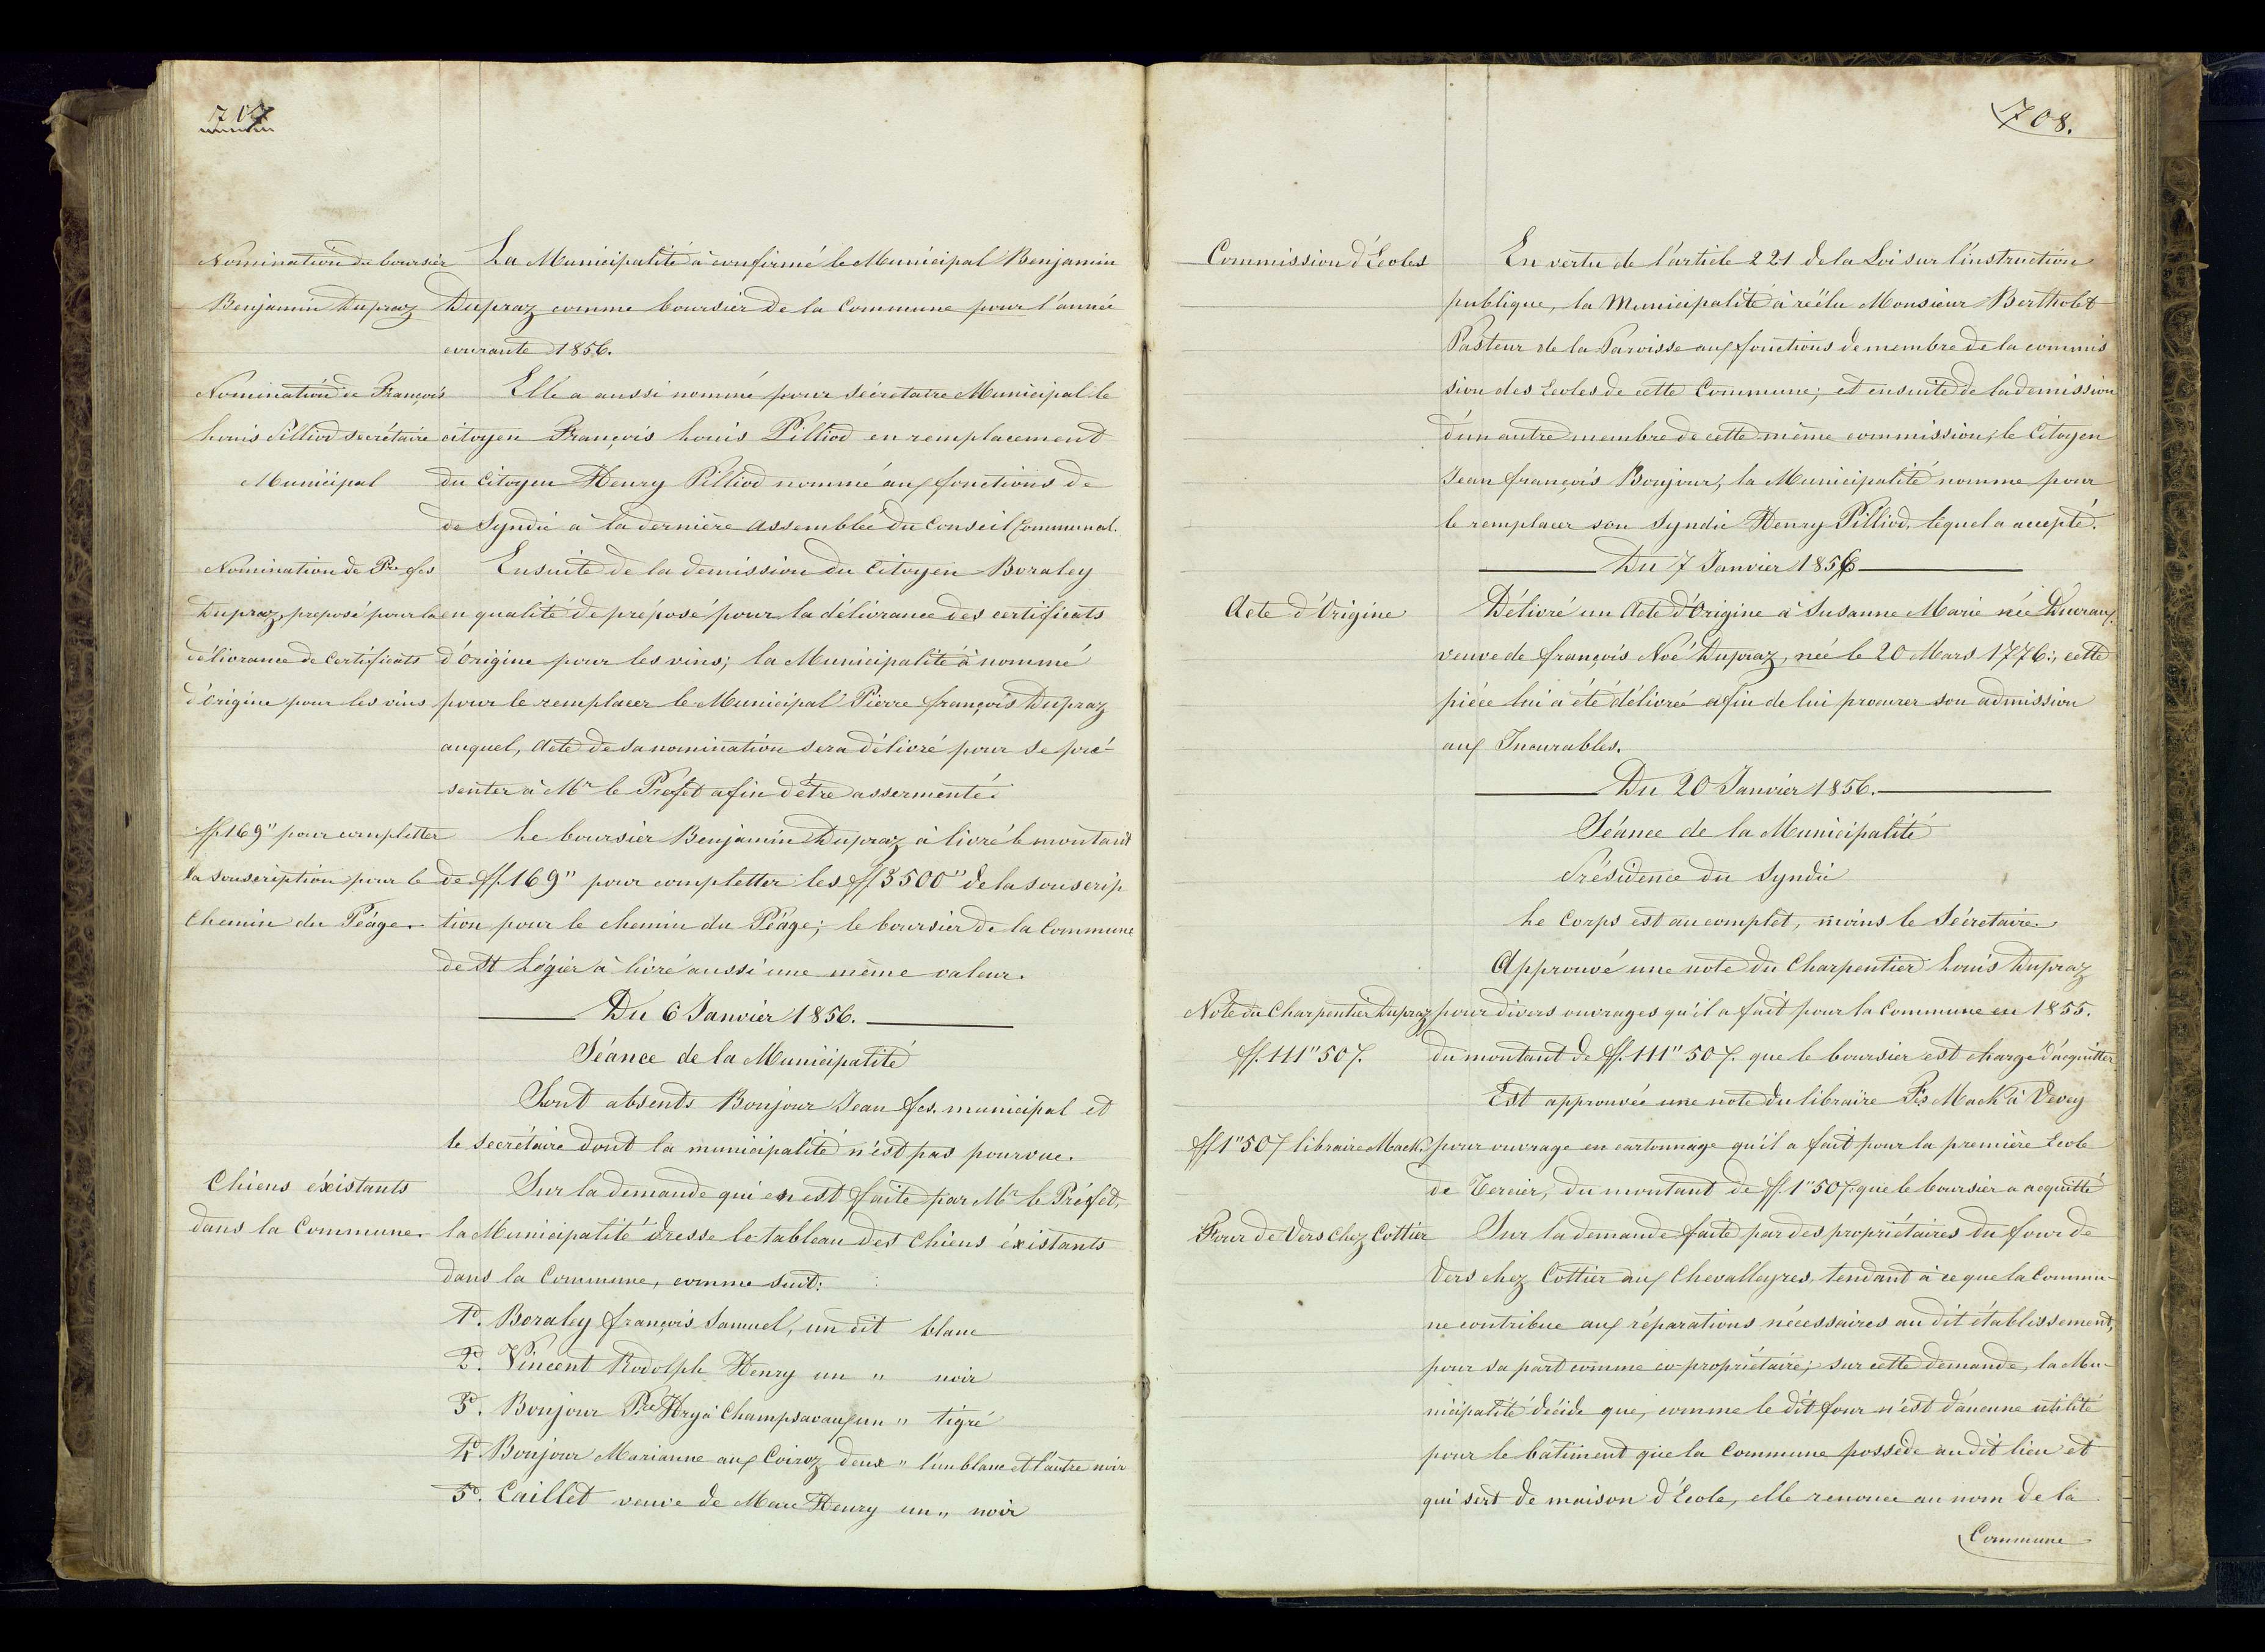 707
Nomination du boursier
Benjamin Dupraz
La Municipalité à confirmé le Municipal Benjamin
Dupraz comme boursier de la Commune pour l'année
courante 1856.
Nomination de François
Louis Pilliod secrétaire
Municipal
Elle a aussi nommé pour sécretaire Municipal le
citoyen François Louis Pilliod en remplacement
du Citoyen Henry Pilliod nommé aux fonctions de
de Syndic à la dernière assemblée du Conseil Communal.
Nomination de Pre fçs
Dupraz, preposé pour la
délivrance de Certificats
d'Origine pour les vins
Ensuite de la demission du Citoyen Boraley
en qualité de préposé pour la délivrance des certificats
d'origine pour les vins; la Municipalité à nommé
pour le remplacer le Municipal Pierre françois Dupraz
auquel, Acte de sa nomination sera délivré pour se pré-
senter à Mr le Préfet afin d'être assermenté.
ff. 169" pour completter
la souscription pour le
Chemin du Péage.
Le boursier Benjamin Dupraz à livré le montant
de ff. 169" pour completter les ff 3500" de la souscrip
tion pour le chemin du Péage; le boursier de la Commune
de St Légier à livré aussi une même valeur.
Du 6 Janvier 1856.
Séance de la Municipalité
Sont absents Bonjour Jean fçs. municipal et
le secrétaire dont la municipalité n'est pas pourvue.
Chiens éxistants
dans la Commune.
Sur la demande qui en est faite par Mr le Préfet,
la Municipalité dresse le tableau des Chiens éxistants
dans la Commune, comme suit:
1o. Boraley françois Samuel, un dit blanc
2o. Vincent Rodolph Henry un " noir
3o. Bonjour Pre Hry à Champsavaux un " tigré
4o. Bonjour Marianne aux Coiroz deux " l'un blanc et l'autre noir
5o. Caillet veuve de Marc Henry un " noir
708.
Commission d'Ecoles
En vertu de l'article 221 de la Loi sur l'instruction
publique, la Municipalité à réélu Monsieur Bertholet
Pasteur de la Paroisse aux fonctions de membre de la commis
sion des Ecoles de cette Commune; et ensuite de la demission
d'un autre membre de cette même commission, le Citoyen
Jean françois Bonjour, la Municipalité nomme pour
le remplacer son Syndic Henry Pilliod, lequel a accepté.
Du 7 Janvier 1856
Acte d'Origine
Délivré un Acte d'Origine à Susanne Marie née Ducraux,
veuve de françois Noé Dupraz, née le 20 Mars 1776; cette
pièce lui a été délivrée afin de lui procurer son admission
aux Incurables.
Du 20 Janvier 1856.
Séance de la Municipalité
Présidence du Syndic
Le Corps est au complet, moins le Sécretaire.
Note du Charpentier Dupraz
ff. 111" 50 7.
Approuvé une note du Charpentier Louis Dupraz
pour divers ouvrages qu'il a fait pour la Commune en 1855.
du montant de ff. 111" 50 7. que le boursier est chargé d'acquitter
ff 1" 50 7 libraire Mack.
Est approuvée une note du libraire Fs Mack à Vevey
pour ouvrage en cartonnage qu'il a fait pour la première Ecole
de Tercier, du montant de ff. 1" 50 7. que le boursier a acquitté
Four de Vers chez Cottier
Sur la demande faite par des propriétaires du four de
Vers chez Cottier aux Chevalleyres, tendant à ce que la Commu-
ne contribue aux réparations nécessaires au dit établissement,
pour sa part comme co-propriétaire; sur cette demande, la Mu-
nicipalité décide que, comme le dit four n'est d'aucune utilité
pour le bâtiment que la Commune possède au dit lieu et
qui sert de maison d'Ecole, elle renonce au nom de la
Commune